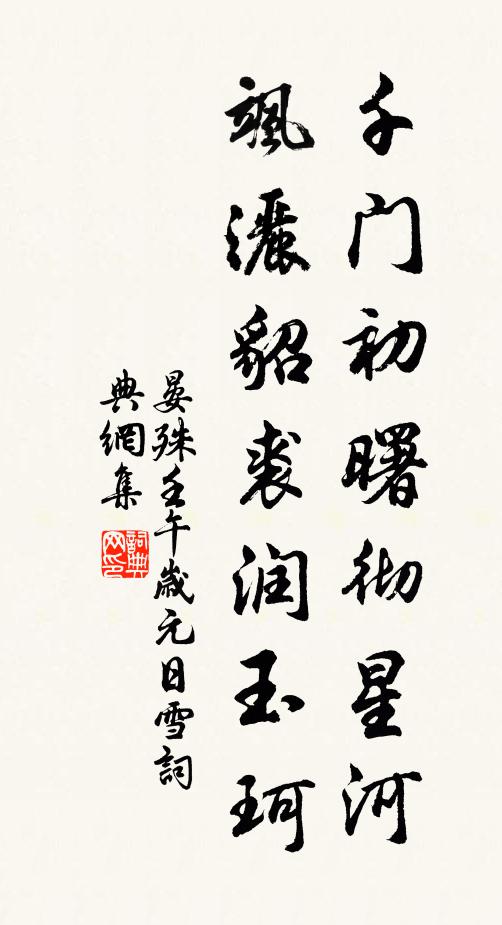 千门初曙彻星河
飒灑貂裘润玉珂
晏殊壬午歲元日雪詞
典網集
詞典网印